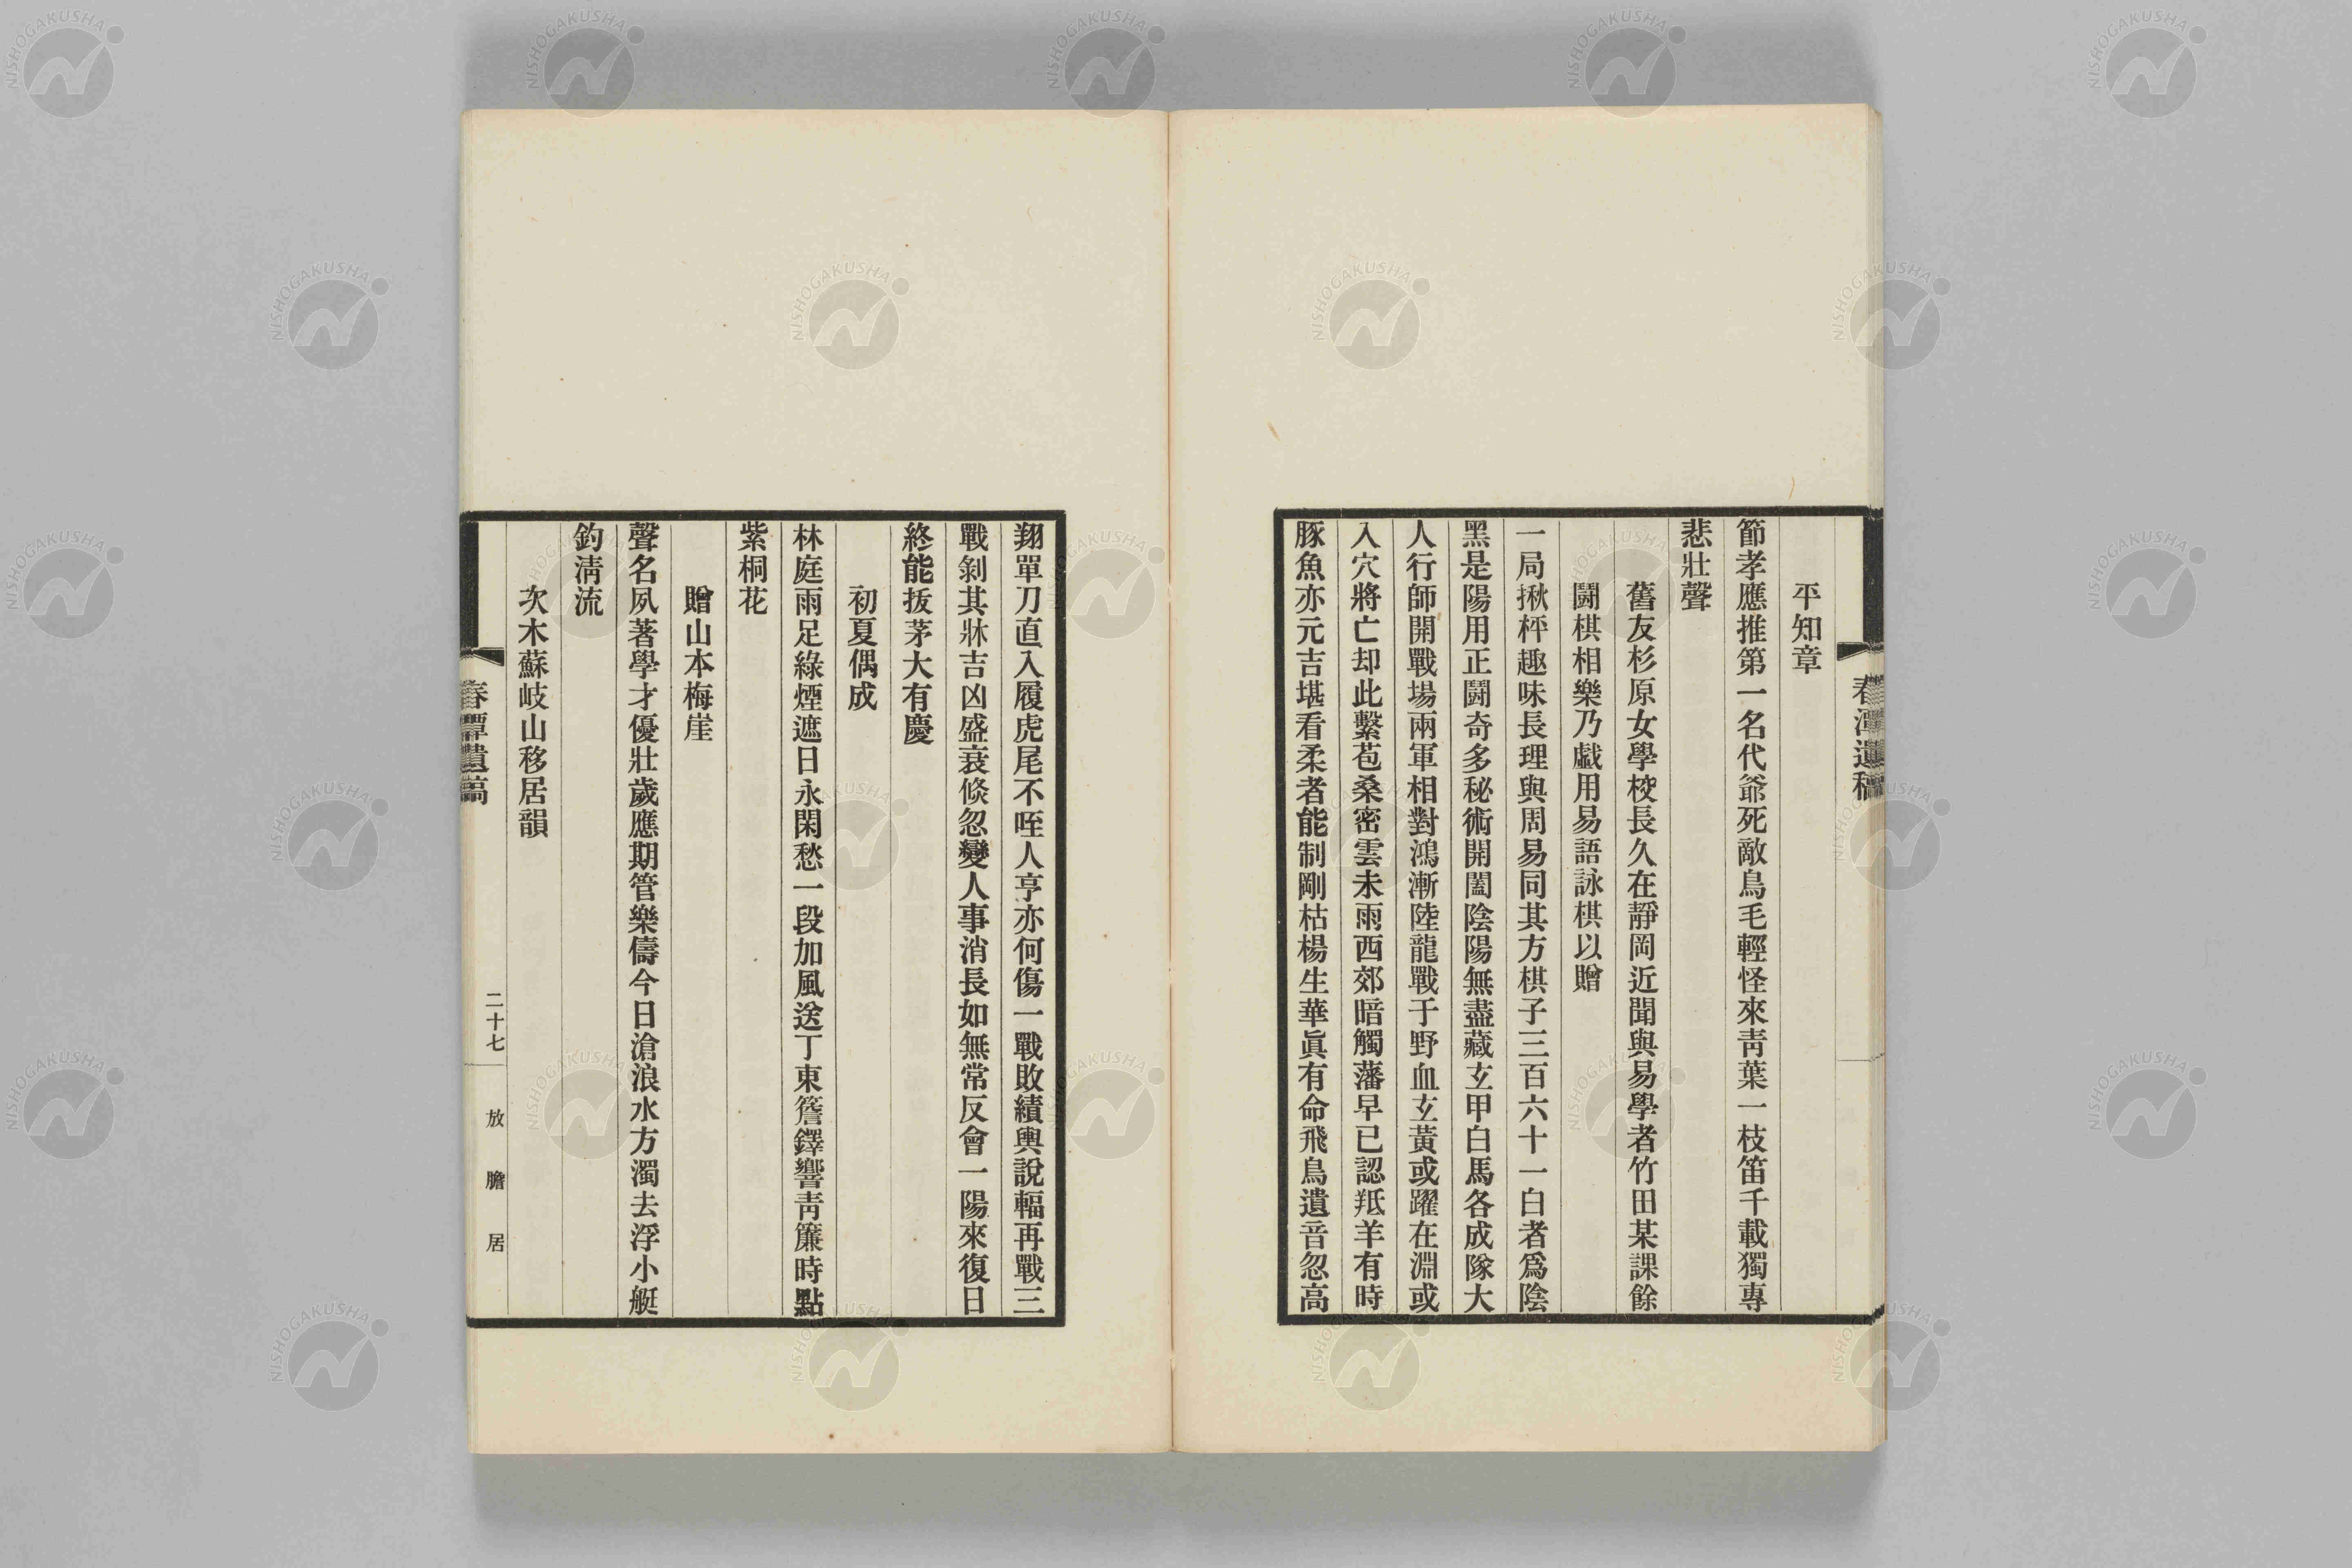 春潭遺稿
平知章
節孝應推第一名代爺死敵鳥毛輕怪來靑葉一枝笛千載獨專
悲壯聲
舊友杉原女學校長久在靜岡近聞與易學者竹田某課餘
鬪棋相樂乃戲用易語詠棋以贈
一局揪枰趣味長理與周易同其方棋子三百六十一白者爲陰
黑是陽用正鬪奇多秘術開闔陰陽無盡藏玄甲白馬各成隊大
人行師開戰場兩軍相對鴻漸陸龍戰于野血玄黃或躍在淵或
入穴將亡却此繫苞桑密雲未雨西郊暗觸藩早已認羝羊有時
豚魚亦元吉堪看柔者能制剛枯楊生華眞有命飛鳥遺音忽高
翔單刀直入履虎尾不咥人亨亦何傷一戰敗績輿說輻再戰三
戰剝其牀吉凶盛衰倏忽變人事消長如無常反會一陽來復日
終能拔茅大有慶
初夏偶成
林庭雨足綠煙遮日永閑愁一段加風送丁東簷鐸響靑簾時點
紫桐花
贈山本梅崖
聲名夙著學才優壯歲應期管樂儔今日滄浪水方濁去浮小艇
釣淸流
次木蘇岐山移居韻
春潭遺稿
二十七
放膽居
NISHOGAKUSHA